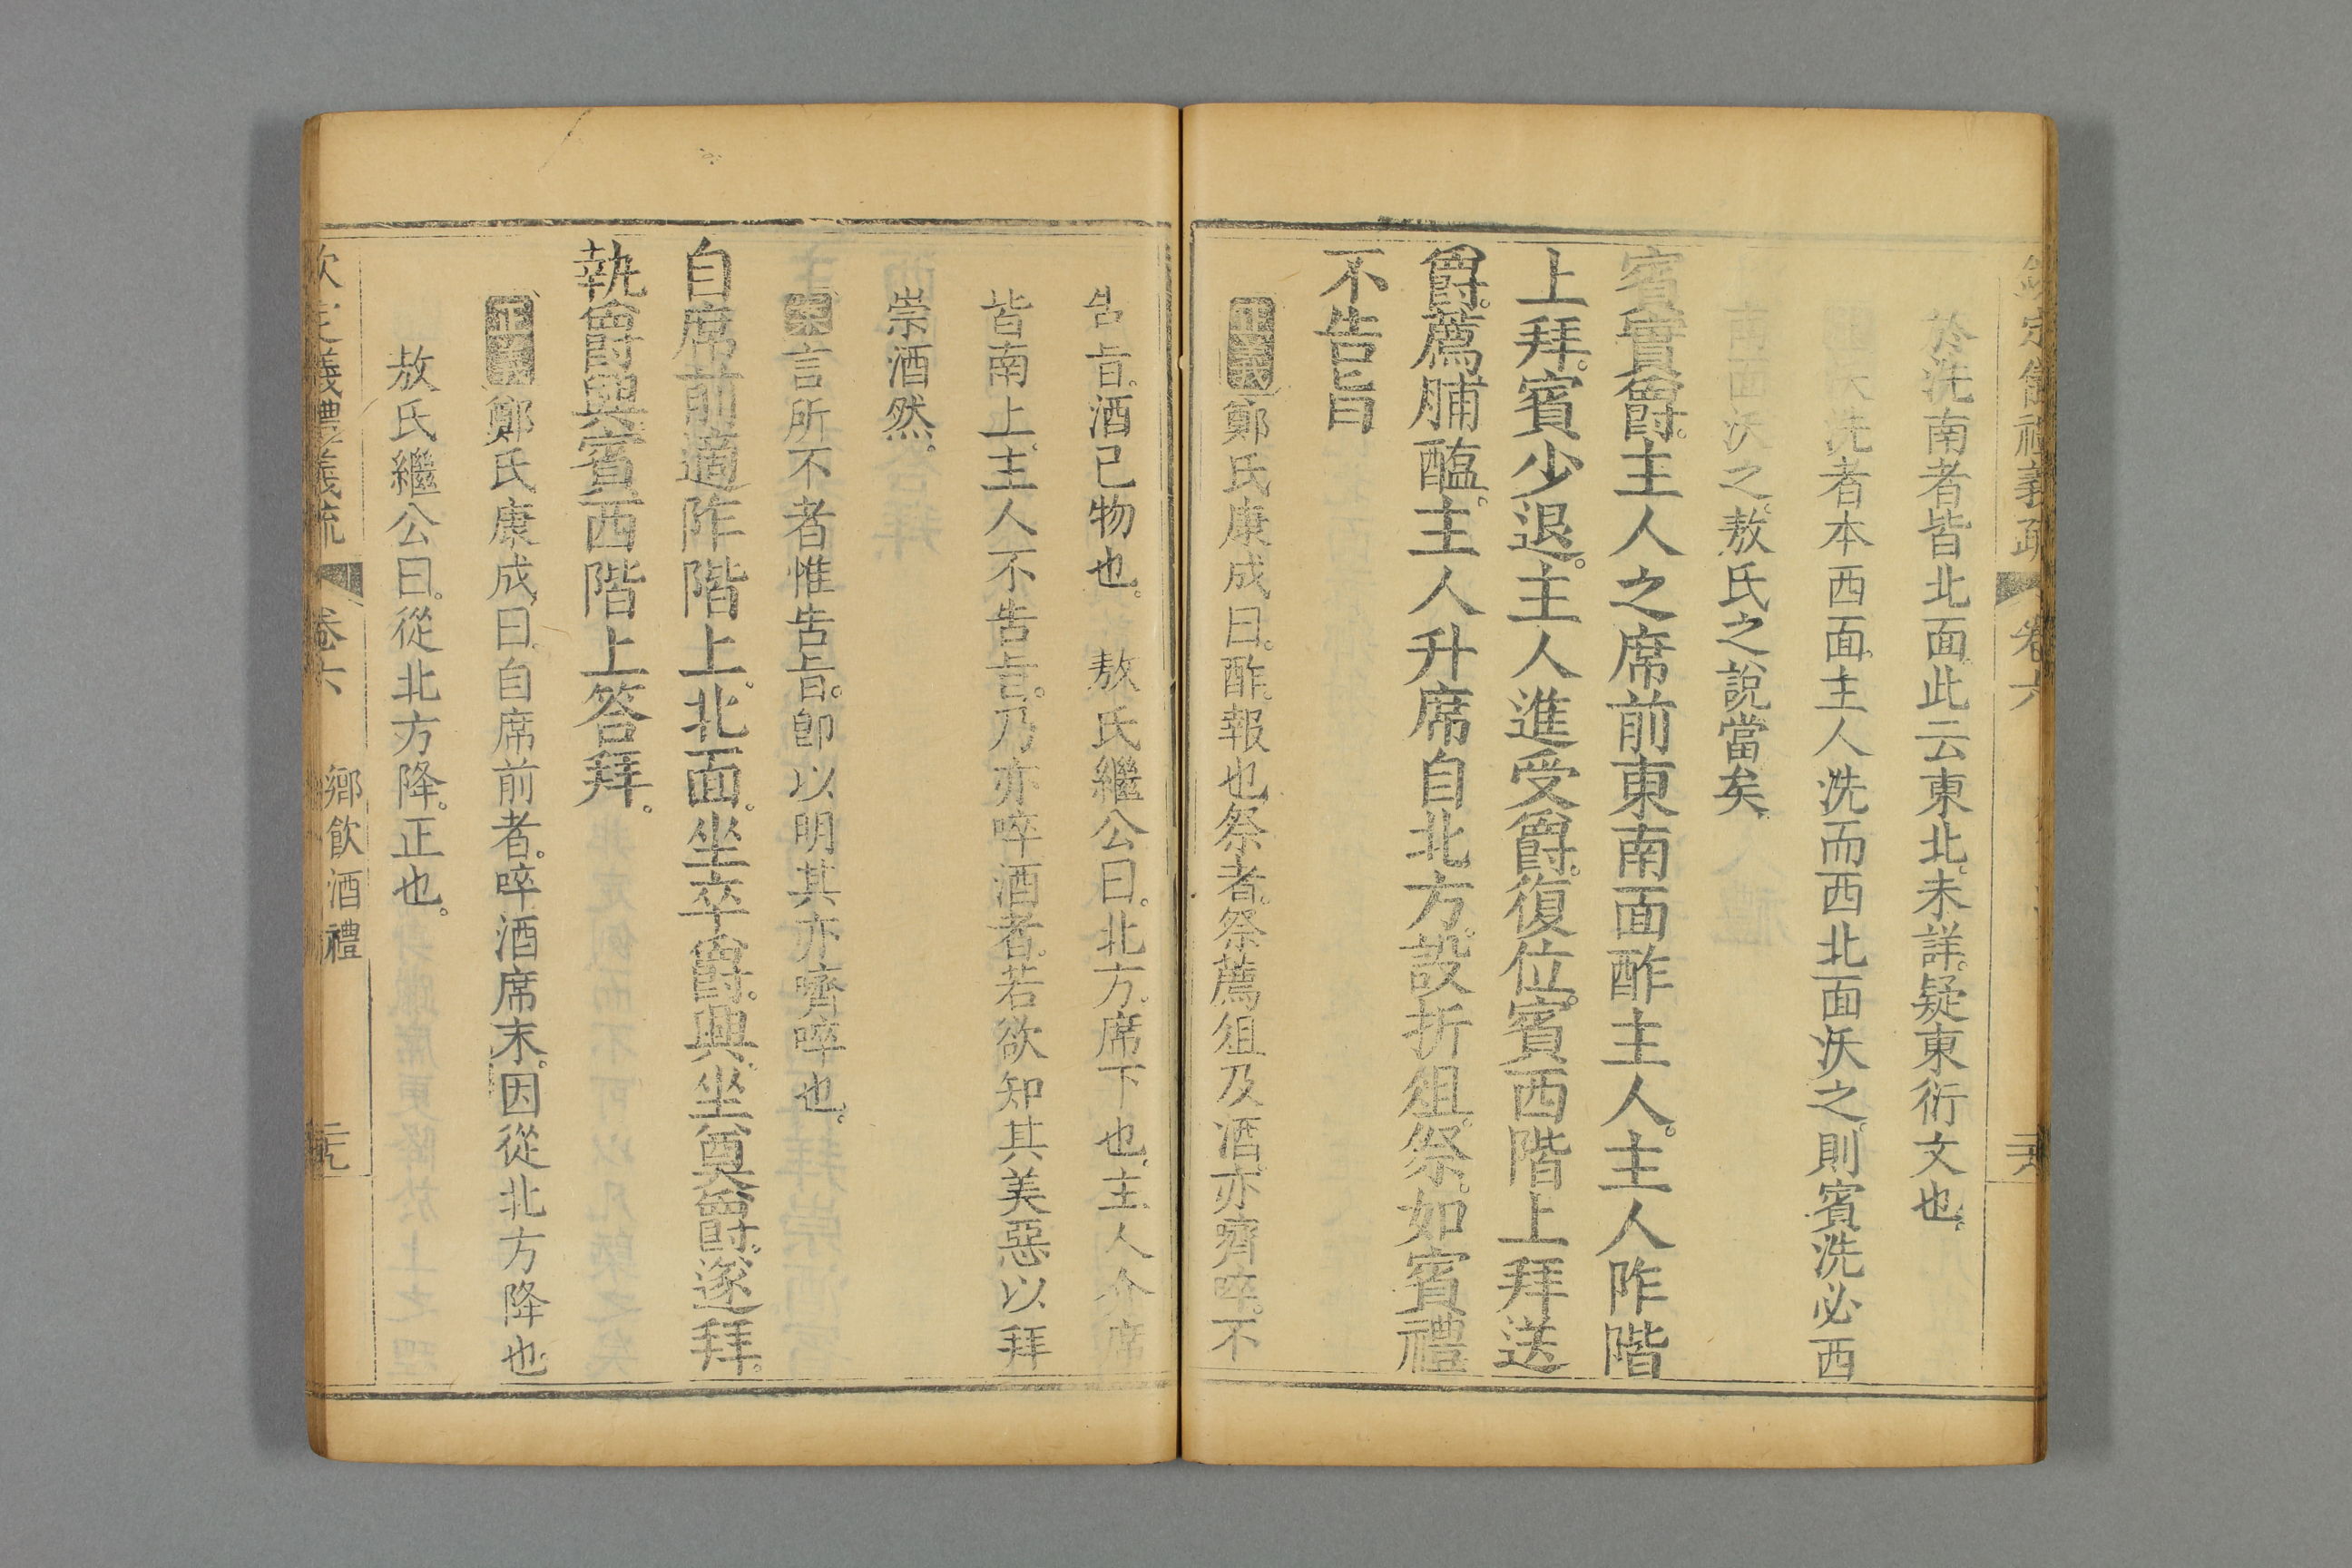 欽定儀禮義疏 卷六 芺
於洗南者皆北面此云東北。未詳。疑東衍文也。
洗者本西面。主人洗而西北面沃之。則賓洗必西
南面沃之。敖氏之說當矣。
賓實爵。主人之席前東南面酢主人。主人阼階
上拜。賓少退。主人進受爵。復位。賓西階上拜送
爵。薦脯醢。主人升席自北方。設折俎。祭。如賓禮
不告旨
正義鄭氏康成曰。酢。報也祭者。祭薦俎及酒。亦嚌啐。不
告旨。酒已物也。 敖氏繼公曰。北方。席下也。主人介席
皆南上。主人不告旨。乃亦啐酒者。若欲知其美惡以拜
崇酒然。
案言所不者惟告旨。卽以明其亦嚌啐也。
自席前適阼階上。北面。坐卒爵。興。坐奠爵。遂拜。
執爵興賓西階上答拜。
正義鄭氏康成曰。自席前者。啐酒席末。因從北方降也
敖氏繼公曰。從北方降。正也。
欽定儀禮義疏 卷六 鄉飲酒禮